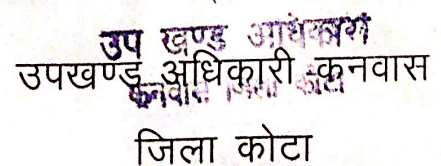 उप खण्ड अधिकारी
उपखण्ड अधिकारी कनवास
कनवास जिला कोटा
जिला कोटा